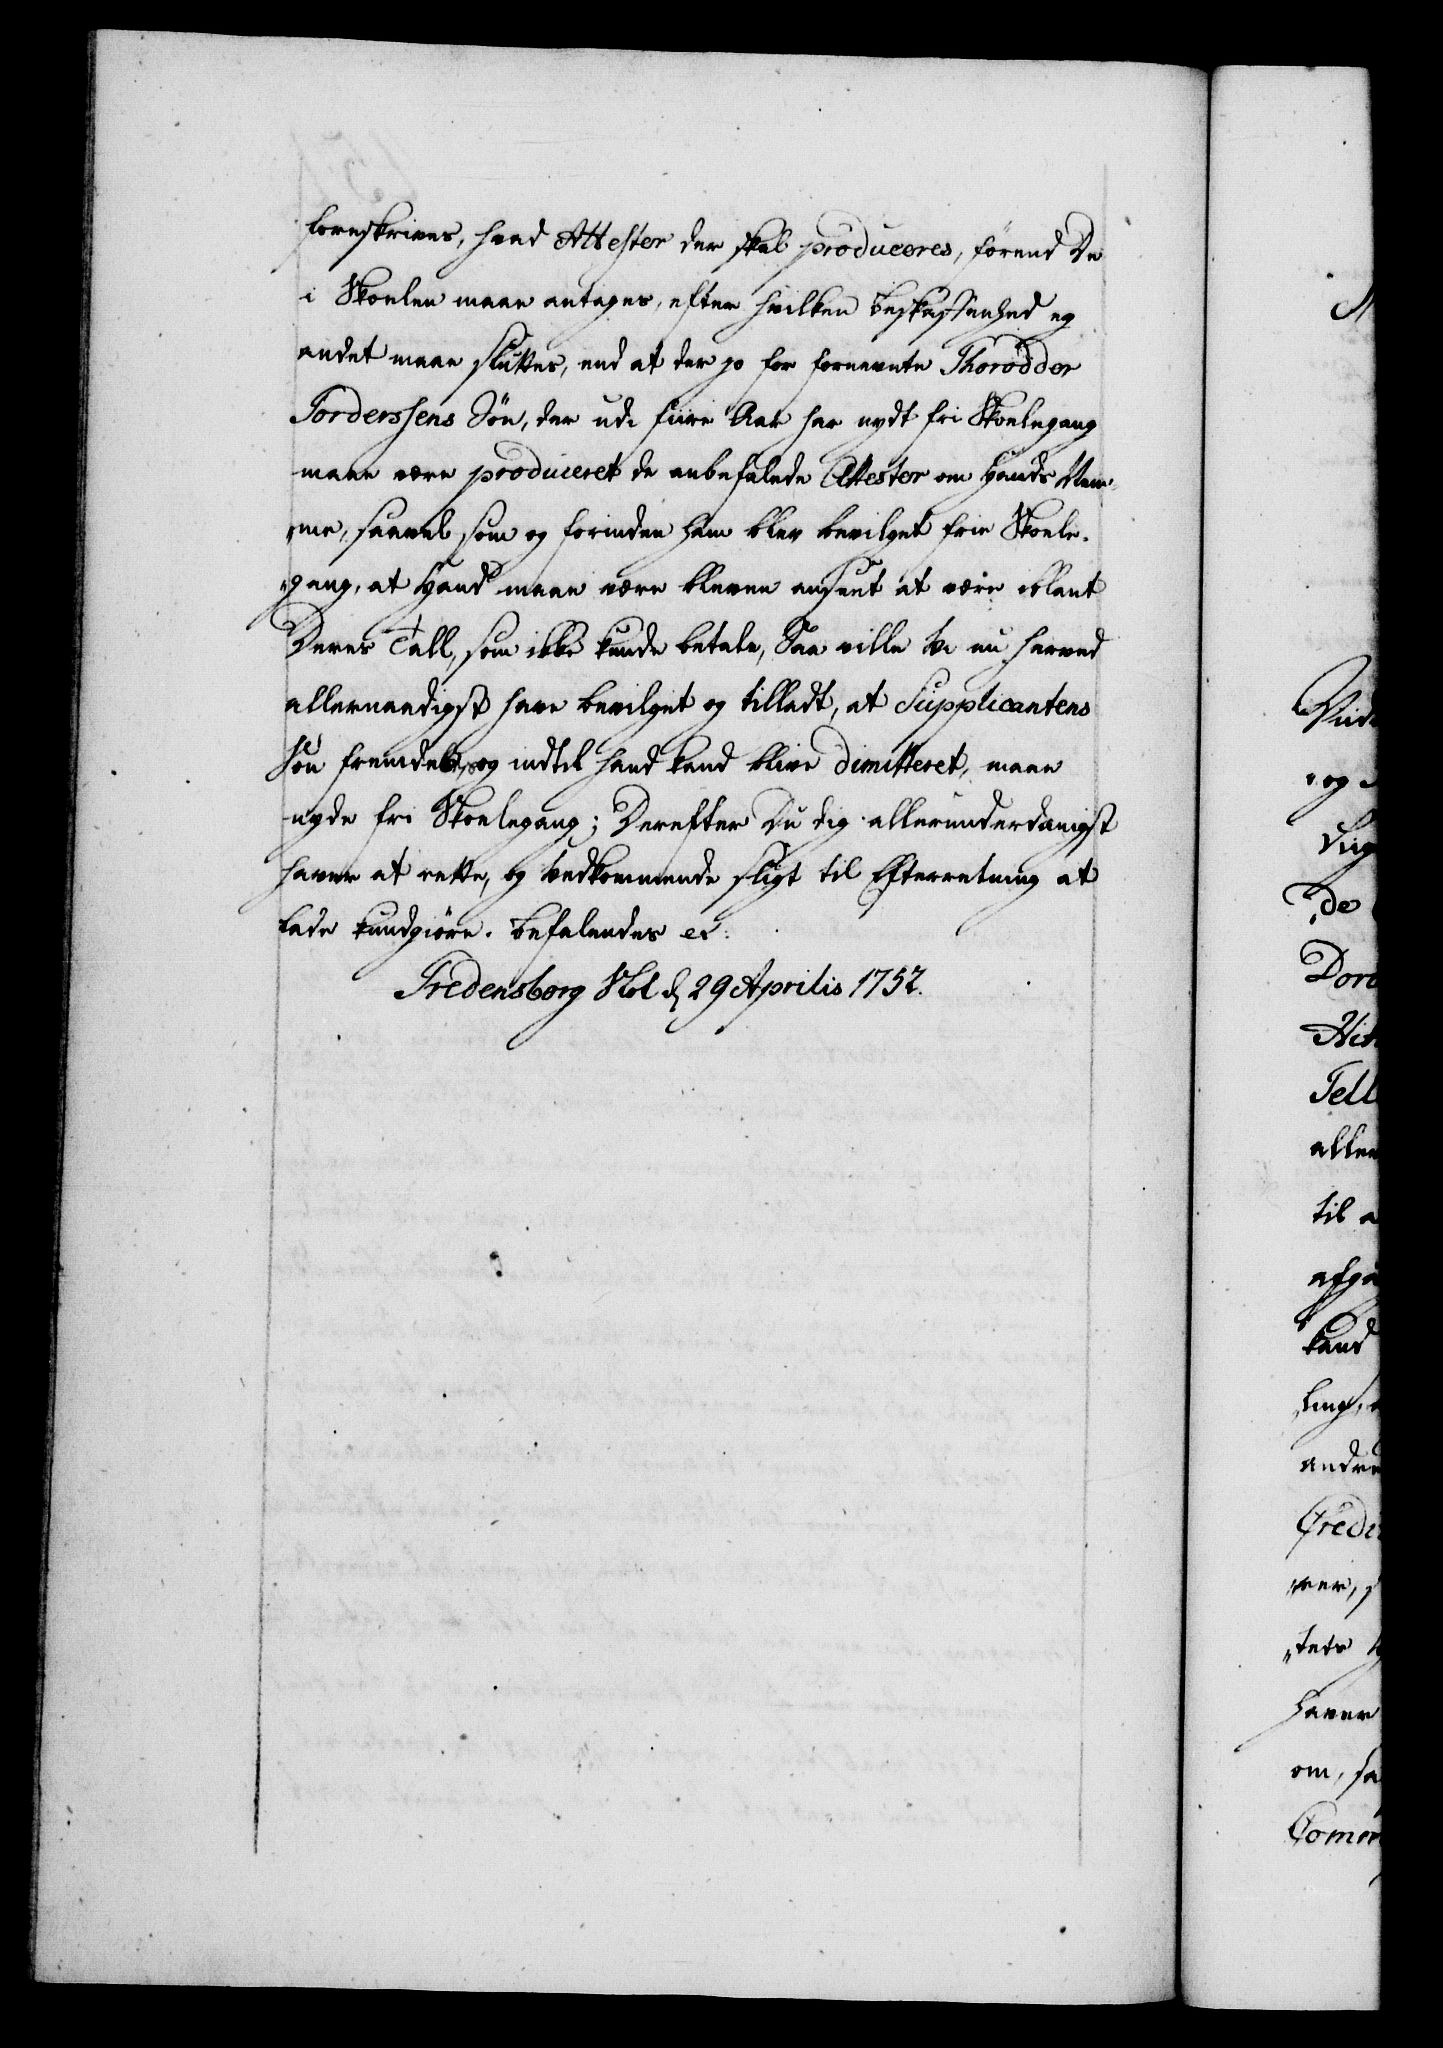 foreskrives, hvad Attester der skal produceres, förend De
i Skoelen maae antages, efter hvilken beskaffenhed ey
andet maae sluttes, end at der jo for fornevnte Thorodder
Torderssens Sön, der udi fiire Aar har nydt fri Skoelegang
maae være produceret de anbefalede Attester om Hands Nem¬
me, saavel som og forinden ham blev bevilget frie Skoele¬
gang, at Hand maae være bleven anseet at være iblant
Deres Tall, som ikke kunde betale, Saa ville Vi nu herved
allernaadigst have bevilget og tilladt, at Supplicantens
Sön fremdeles, og indtil hand kand blive dimitteret, maae
nyde fri Skoelegang; Derefter Du dig allerunderdanigst
haver at rette, og Vedkommende sligt til Efterretning at
lade kundgiöre. Befalendes etc:
Fredensborg Slot d 29 Aprilis 1752.
og
De
Doro
Tell
aller
til a
afga
kand
ling,
andre
Credi
ver,
tets
haver
om, sa
Comm